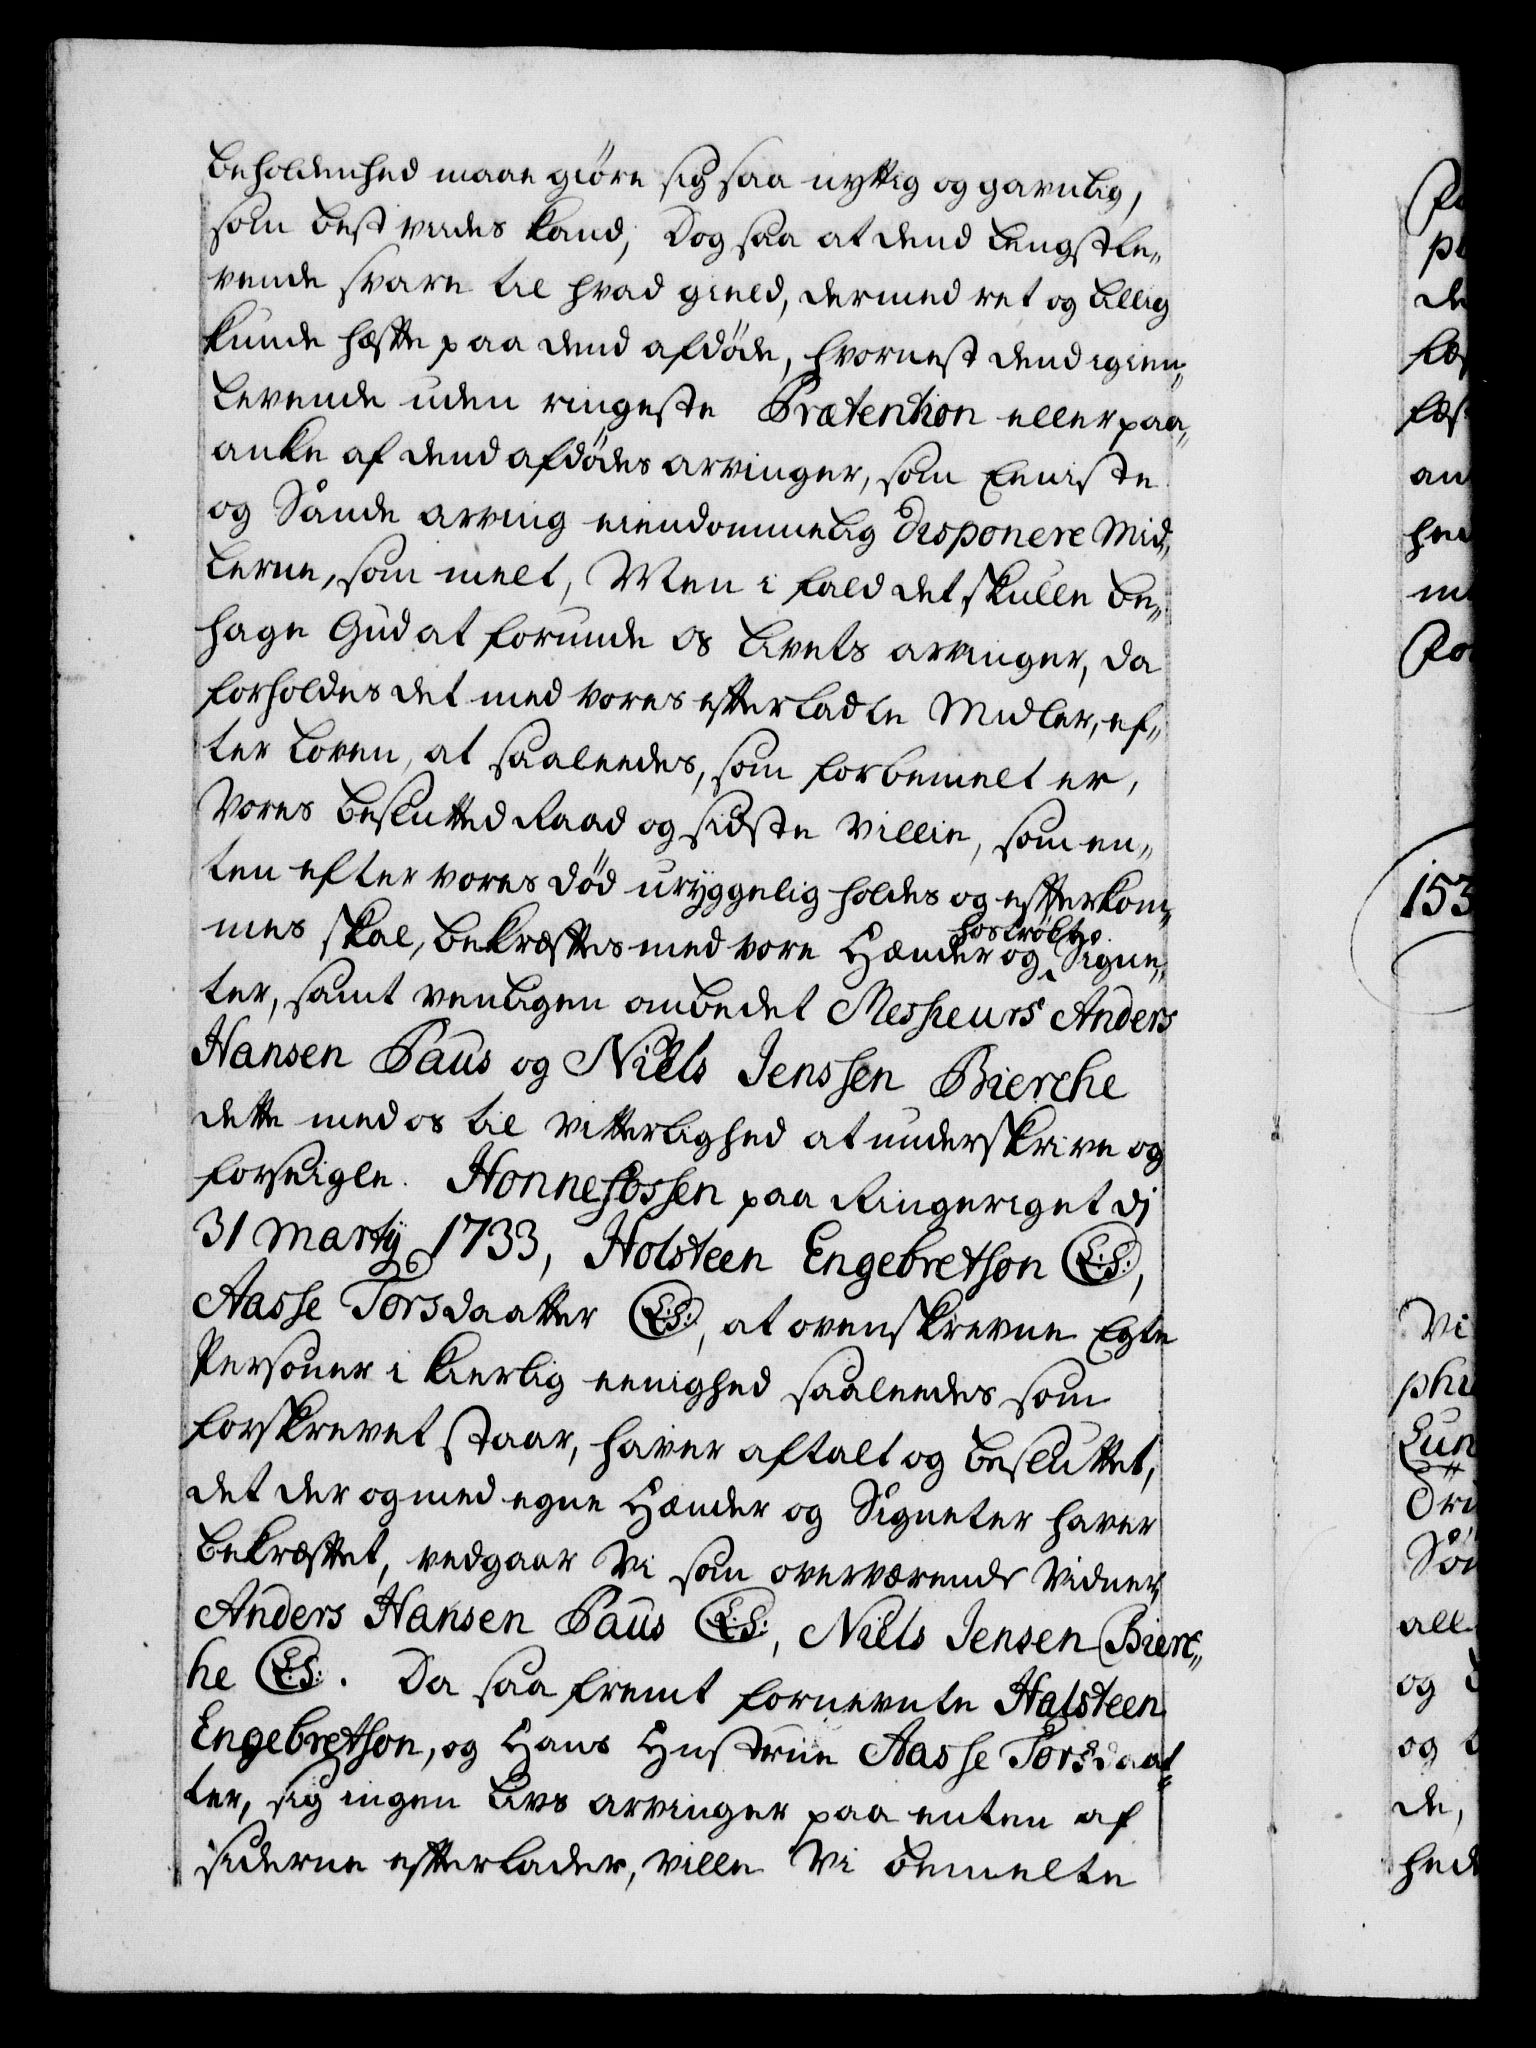 beholdenhed maae giöre sig saa nyttig og gavnlig,
som best vides kand, Dog saa at dend lengstle„
vende svare til hvad gield, dermed ret og billig
kunde hæfte paa dend afdöde, hvornest dend igien„
levende uden ringeste Prætention eller paa„
anke af dend afdödes arvinger, som Eeniste
og Sande arving eiendommelig disponere Mid„
lerne, som melt, Men i fald det skulle be„
hage Gud at forunde os livets arvinger, da
forholdes det med vores efterladte Midler, ef„
ter loven, at saaleedes, som forbemelt er,
Vores beslutted Raad og sidste Villie, som en„
ten efter vores död uryggelig holdes og efterkom„
mes skal, bekræftes med vore Hænder og hoströkte Signe„
ter, samt venligen ombedet Messieurs Anders
Hansen Paus og Niels Jenssen Bierche
dette med os til Vitterlighed at underskrive og
forseigle. Honnefossen paa Ringeriget dj
31 Martij 1733, Holsteen Engebretson L:S:,
Aasse Torsdaatter L:S:, at ovenskrevne Egte
Personer i kierlig eenighed saaleedes som
forskrevet staar, haver aftalt og besluttet,
det der og med egne Hænder og Signeter haver
bekræftet, vedgaar Vi som overværende Vidner,
Anders Hansen Paus L:S:, Niels Jensen Bierc„
he L:S:. Da saa fremt fornevnte Halsteen
Engebretson, og Hans Hustrue Aasse Torsdaat„
ter, sig ingen livs arvinger paa enten af
siderne efterlader, ville Vi bemelte
153